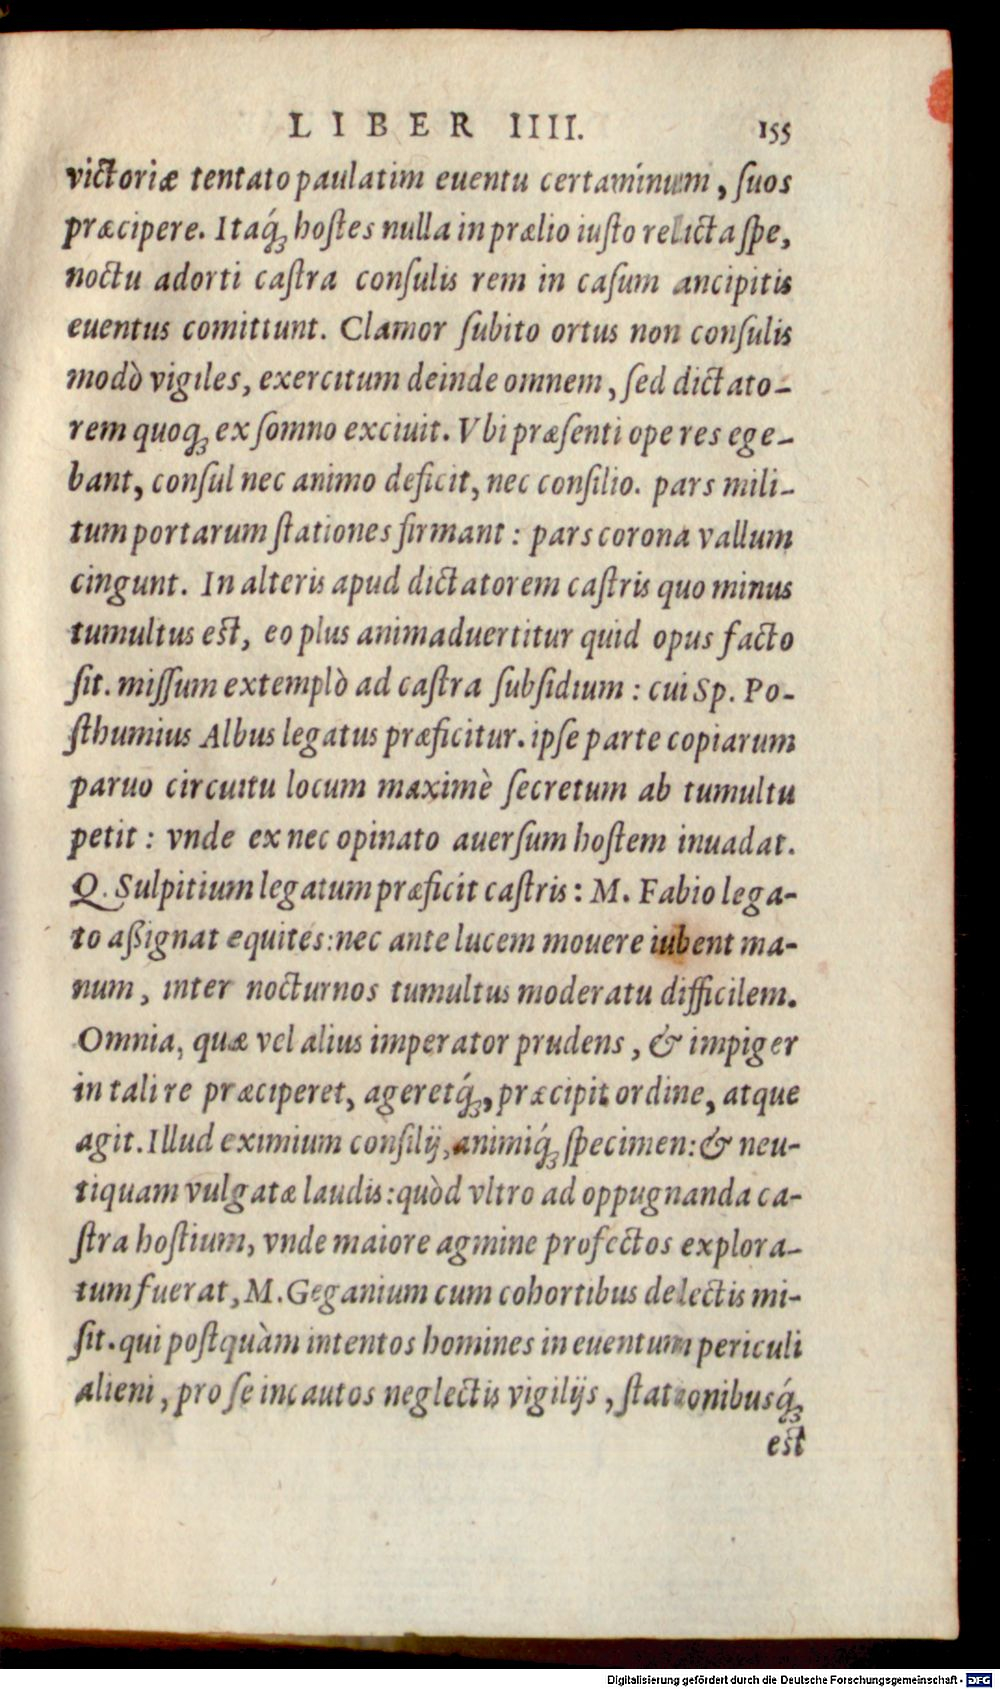 LIBER IIII. 155
victoriæ tentato paulatim euentu certaminum, ſuos
præcipere. Itaq́ꝫ hoſtes nulla in prælio iuſto relicta ſpe,
noctu adorti caſtra conſulis rem in caſum ancipitis
euentus comittunt. Clamor ſubito ortus non conſulis
modò vigiles, exercitum deinde omnem, ſed dictato-
rem quoqꝫ ex ſomno exciuit. Vbi præſenti ope res ege-
bant, conſul nec animo deficit, nec conſilio. pars mili-
tum portarum ſtationes firmant: pars corona vallum
cingunt. In alteris apud dictatorem caſtris quo minus
tumultus est, eo plus animaduertitur quid opus facto
ſit. miſſum extemplò ad caſtra ſubſidium: cui Sp. Po-
ſthumius Albus legatus præficitur. ipſe parte copiarum
paruo circuitu locum maximè ſecretum ab tumultu
petit: vnde ex nec opinato auerſum hoſtem inuadat.
Q. Sulpitium legatum præficit caſtris: M. Fabio lega-
to aßignat equites: nec ante lucem mouere iubent ma-
num, inter nocturnos tumultus moderatu difficilem.
Omnia, quæ vel alius imperator prudens, & impiger
in tali re præciperet, ageretq́ꝫ, præcipit ordine, atque
agit. Illud eximium conſilij, animiq́ꝫ ſpecimen: & neu-
tiquam vulgatæ laudis: quòd vltro ad oppugnanda ca-
ſtra hoſtium, vnde maiore agmine profectos explora-
tum fuerat, M. Geganium cum cohortibus delectis mi-
ſit. qui poſtquàm intentos homines in euentum periculi
alieni, pro ſe incautos neglectis vigilijs, ſtationibusq́ꝫ
est
Digitalisierung gefördert durch die Deutsche Forschungsgemeinschaft - DFG